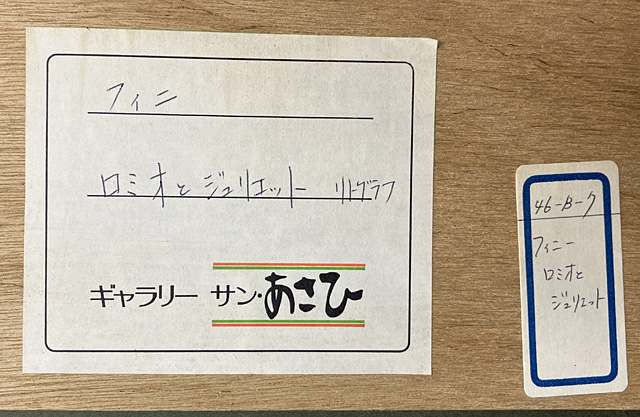 フィニ
ロミオとジュリエット リトグラフ
ギャラリー サン・あさひ
46-B-7
フィニー
ロミオと
ジュリエット